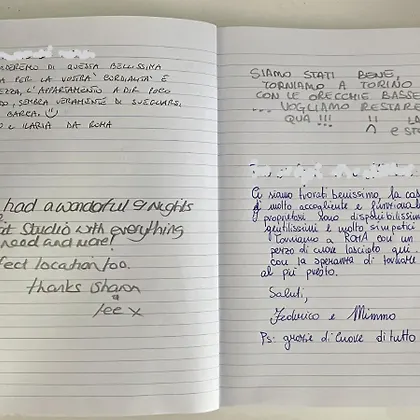 DEREMO DI QUESTA BELLISSIMA
PER LA VOSTRA CORDIALITA' E
EZZA, L'APPARTAMENTO A DIR POCO
DO, SEMBRA VERAMENTE DI SVEGLIARSI
BARCA. 🙂
E ILARIA DA ROMA
had a wonderful 9 nights
at Studio with everything
need and more!
fect location too.
thanks Sharon
&
Lee x
SIAMO STATI BENE,
TORNIAMO A TORINO
CON LE ORECCHIE BASSE
... VOGLIAMO RESTARE
QUA !!!
LA
E ST
Ci siamo trovati benissimo, la casa
è molto accogliente e funzionale
I proprietari sono disponibilissimi
gentilissimi e molto simpatici
Torniamo a ROMA con un
pezzo di cuore lasciato qui
con la speranza di tornare
al più presto.
Saluti,
Federico e Mimmo
Ps: grazie di cuore di tutto